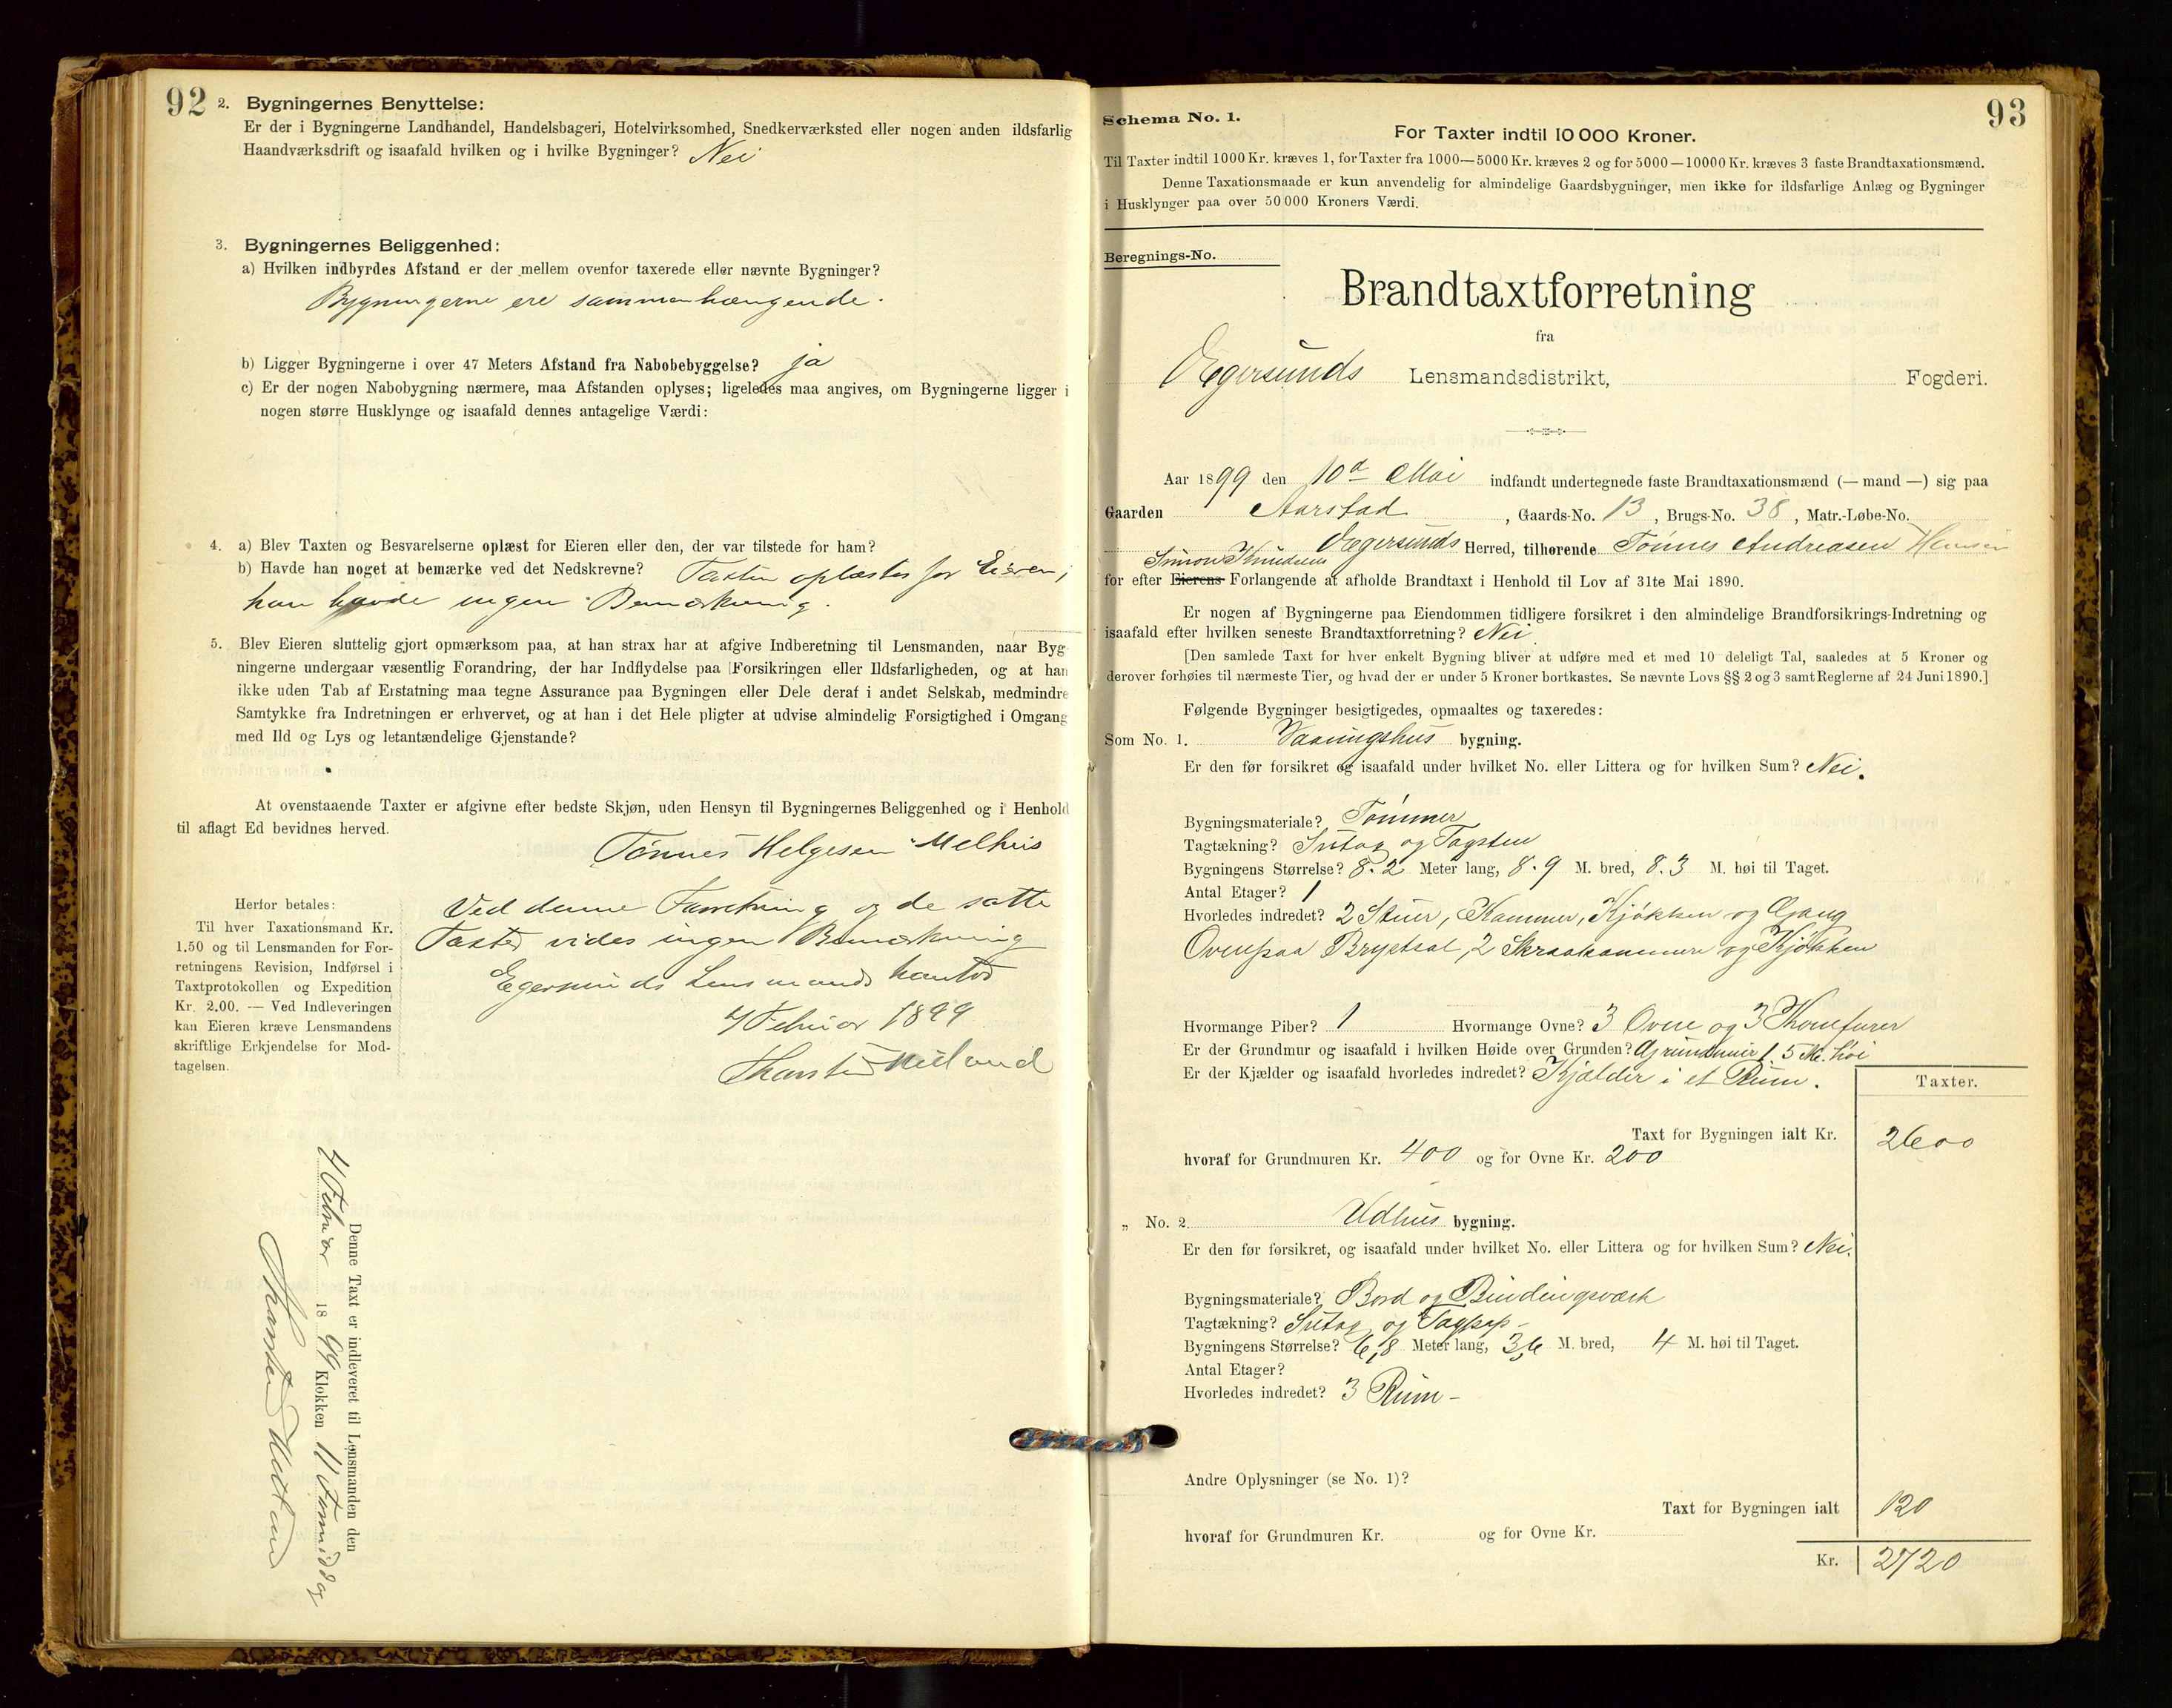 92
2. Bygningernes Benyttelse:
Er der i Bygningerne Landhandel, Handelsbageri, Hotelvirksomhed, Snedkerværksted eller nogen anden ildsfarlig
Haandværksdrift og isaafald hvilken og i hvilke Bygninger? Nei
3. Bygningernes Beliggenhed:
a) Hvilken indbyrdes Afstand er der mellem ovenfor taxerede eller nævnte Bygninger?
Bygningerne ere sammenhængende.
b) Ligger Bygningerne i over 47 Meters Afstand fra Nabobebyggelse? ja
c) Er der nogen Nabobygning nærmere, maa Afstanden oplyses; ligeledes maa angives, om Bygningerne ligger i
nogen større Husklynge og isaafald dennes antagelige Værdi:
4. a) Blev Taxten og Besvarelserne oplæst for Eieren eller den, der var tilstede for ham?
b) Havde han noget at bemærke ved det Nedskrevne? Taxten oplæstes for Eieren,
han havde ingen Bemærkning.
5. Blev Eieren sluttelig gjort opmærksom paa, at han strax har at afgive Indberetning til Lensmanden, naar Byg-
ningerne undergaar væsentlig Forandring, der har Indflydelse paa Forsikringen eller Ildsfarligheden, og at han
ikke uden Tab af Erstatning maa tegne Assurance paa Bygningen eller Dele deraf i andet Selskab, medmindre
Samtykke fra Indretningen er erhvervet, og at han i det Hele pligter at udvise almindelig Forsigtighed i Omgang
med Ild og Lys og letantændelige Gjenstande?
At ovenstaaende Taxter er afgivne efter bedste Skjøn, uden Hensyn til Bygningernes Beliggenhed og i Henhold
til aflagt Ed bevidnes herved.
Tønnes Helgesen Melhus
Herfor betales:
Til hver Taxationsmand Kr.
1.50 og til Lensmanden for For-
retningens Revision, Indførsel i
Taxtprotokollen og Expedition
Kr. 2.00. — Ved Indleveringen
kan Eieren kræve Lensmandens
skriftlige Erkjendelse for Mod-
tagelsen.
Ved denne Forretning og de satte
Taxter vides ingen Bemærkning
Egersunds Lensmandskontor
4 Februar 1899
Denne Taxt er indleveret til Lensmanden den
4 Februar 1899 Klokken 11 Formiddag
93
Schema No. 1.
For Taxter indtil 10 000 Kroner.
Til Taxter indtil 1000 Kr. kræves 1, for Taxter fra 1000—5000 Kr. kræves 2 og for 5000—10000 Kr. kræves 3 faste Brandtaxationsmænd.
Denne Taxationsmaade er kun anvendelig for almindelige Gaardsbygninger, men ikke for ildsfarlige Anlæg og Bygninger
i Husklynger paa over 50 000 Kroners Værdi.
Beregnings-No.
Brandtaxtforretning
fra
Egersunds Lensmandsdistrikt, Fogderi.
Aar 1899 den 10d Mai indfandt undertegnede faste Brandtaxationsmænd (— mand —) sig paa
Gaarden Aarstad, Gaards-No. 13, Brugs-No. 38, Matr.-Løbe-No.
Egersunds Herred, tilhørende Tønnes Andreasen
Simon Knudsens
for efter Eierens Forlangende at afholde Brandtaxt i Henhold til Lov af 31te Mai 1890.
Er nogen af Bygningerne paa Eiendommen tidligere forsikret i den almindelige Brandforsikrings-Indretning og
isaafald efter hvilken seneste Brandtaxtforretning? Nei
[Den samlede Taxt for hver enkelt Bygning bliver at udføre med et med 10 deleligt Tal, saaledes at 5 Kroner og
derover forhøies til nærmeste Tier, og hvad der er under 5 Kroner bortkastes. Se nævnte Lovs §§ 2 og 3 samt Reglerne af 24 Juni 1890.]
Følgende Bygninger besigtigedes, opmaaltes og taxeredes:
Som No. 1. Vaaningshus bygning.
Er den før forsikret og isaafald under hvilket No. eller Littera og for hvilken Sum? Nei.
Bygningsmateriale? Tømmer
Tagtækning? Sutag og Tagsten
Bygningens Størrelse? 8.2 Meter lang, 8.9 M. bred, 8.3 M. høi til Taget.
Antal Etager? 1
Hvorledes indredet? 2 Stuer, Kammer, Kjøkken og Gang
Ovenpaa Brystsal, 2 Skraakammere og Kjøkken
Hvormange Piber? 1 Hvormange Ovne? 3 Ovne og 3 Komfurer
Er der Grundmur og isaafald i hvilken Høide over Grunden? Grundmur 1.5 M. høi
Er der Kjælder og isaafald hvorledes indredet? Kjælder i et Rum.
Taxter.
Taxt for Bygningen ialt Kr. 2600
hvoraf for Grundmuren Kr. 400 og for Ovne Kr. 200
„ No. 2 Udhus bygning.
Er den før forsikret, og isaafald under hvilket No. eller Littera og for hvilken Sum? Nei.
Bygningsmateriale? Bord og Bindingsværk
Tagtækning? Sutag og Tagpap
Bygningens Størrelse? 6,8 Meter lang, 3,6 M. bred, 4 M. høi til Taget.
Antal Etager?
Hvorledes indredet? 3 Rum
Andre Oplysninger (se No. 1)?
Taxt for Bygningen ialt 120
hvoraf for Grundmuren Kr. og for Ovne Kr.
Kr. 2720